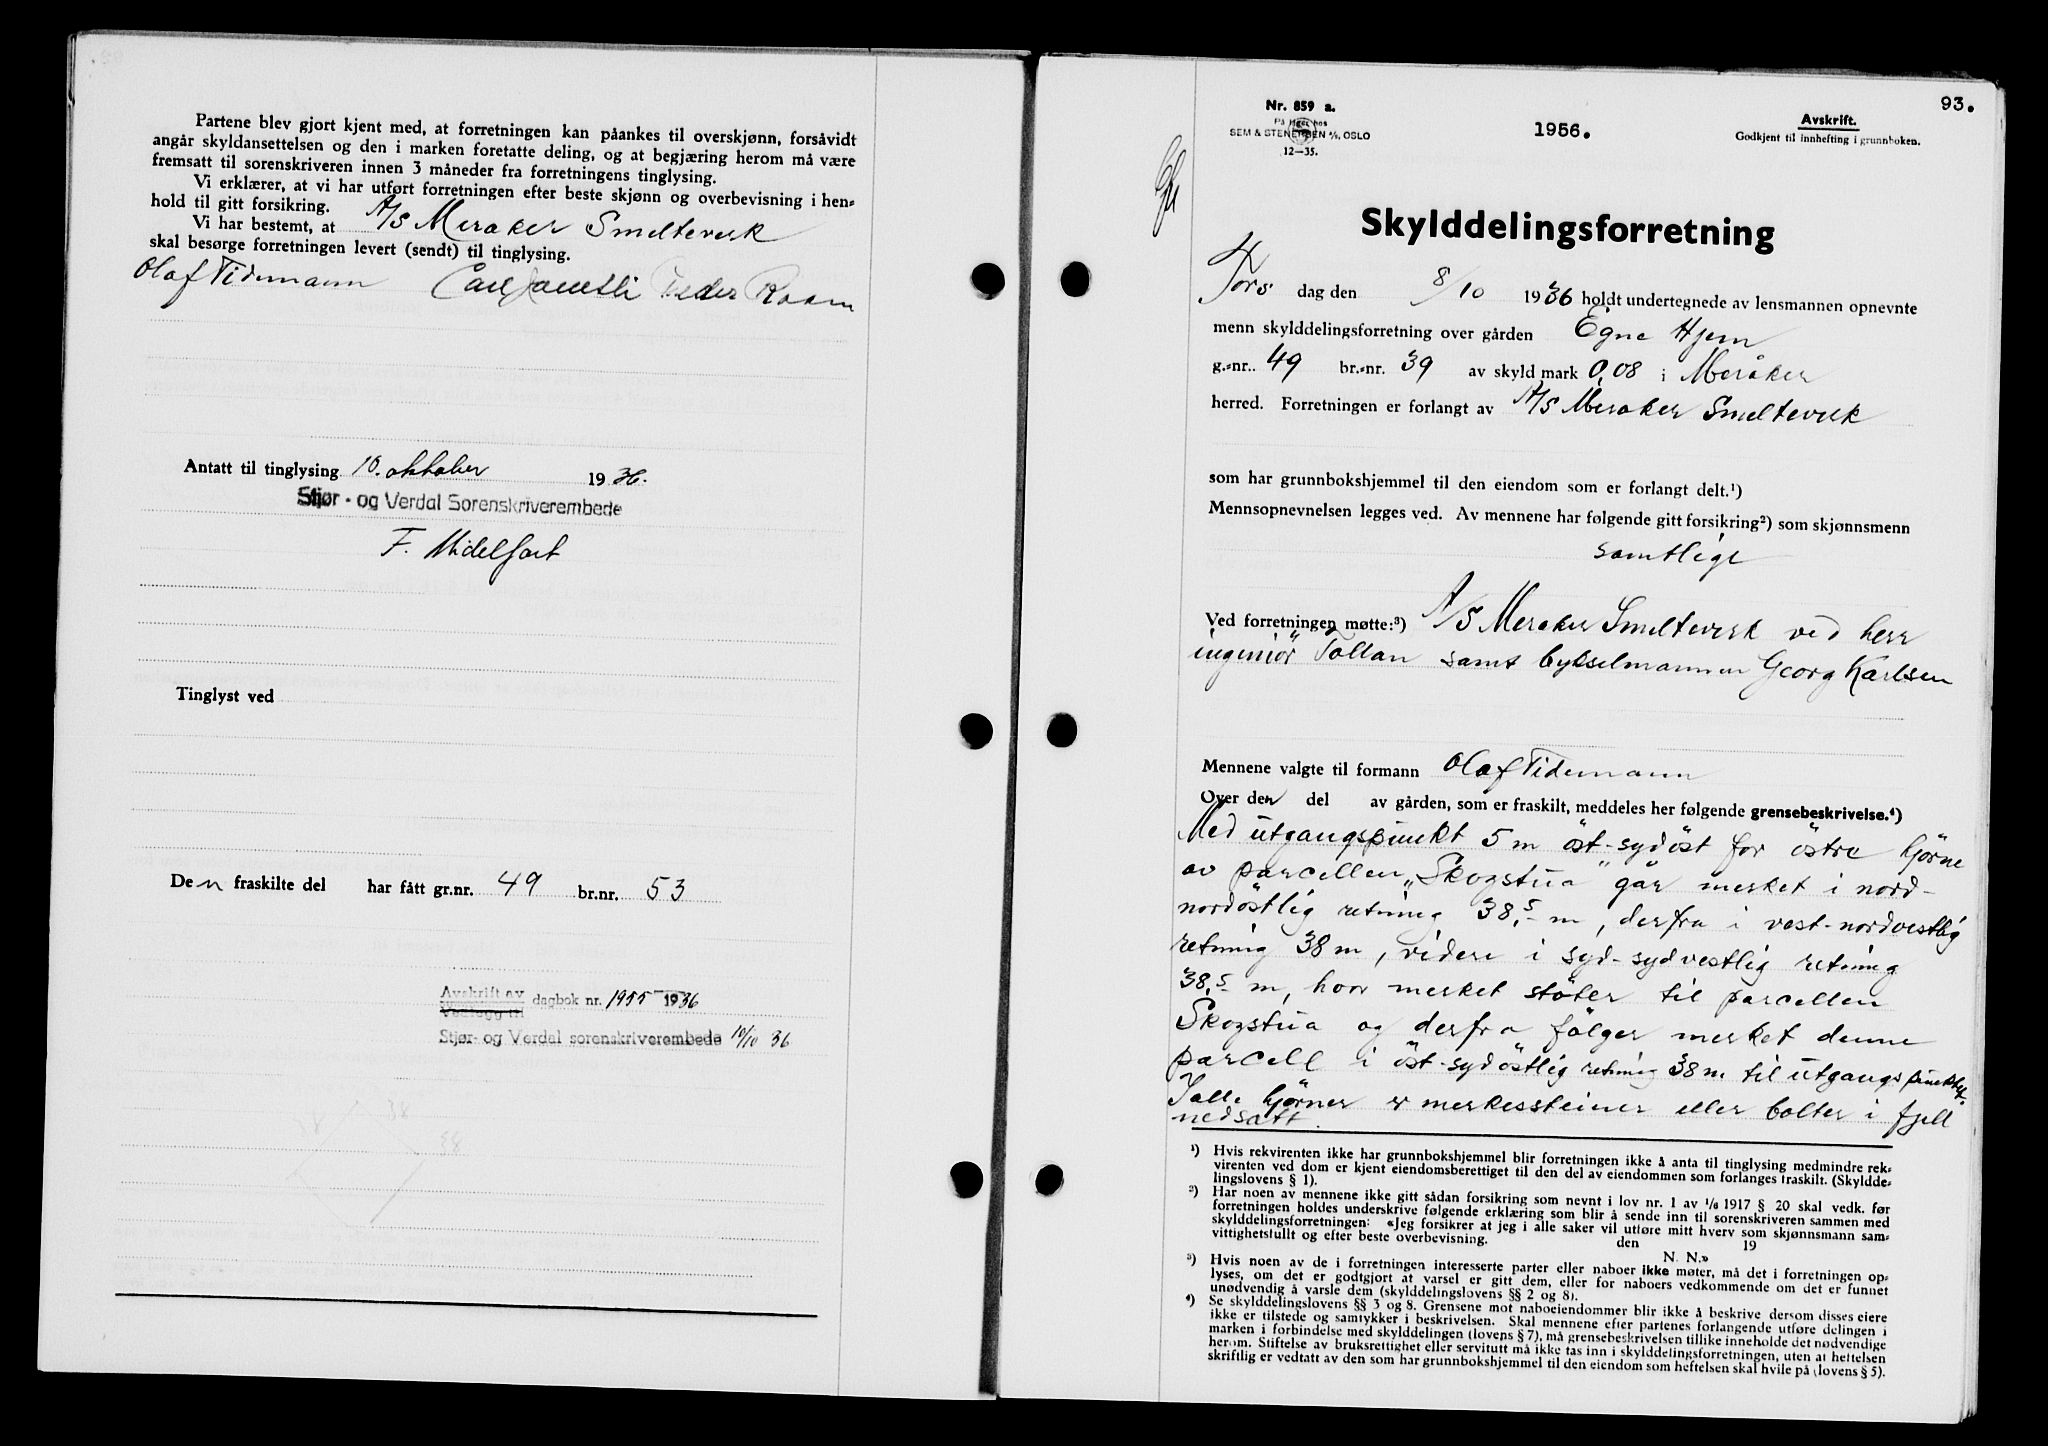 Partene blev gjort kjent med, at forretningen kan påankes til overskjønn, forsåvidt
angår skyldansettelsen og den i marken foretatte deling, og at begjæring herom må være
fremsatt til sorenskriveren innen 3 måneder fra forretningens tinglysing.
Vi erklærer, at vi har utført forretningen efter beste skjønn og overbevisning i hen-
hold til gitt forsikring.
Vi har bestemt, at A/S Meraker Smelteverk
skal besørge forretningen levert (sendt) til tinglysing.
Olaf Tidemann Carl Peder Raaen
Antatt til tinglysing 10. oktober 1936.
Stjør- og Verdal Sorenskriverembede
F. Midelfart
Tinglyst ved
Den fraskilte del har fått gr.nr. 49 br.nr. 53
Avskrift av
Vedlegg til
dagbok nr. 1955 1936
Stjør- og Verdal sorenskriverembede 10/10 36
38
38
93.
Nr. 859 a.
På lager hos
SEM & STENERSEN A/S, OSLO
12—35.
1956.
Avskrift.
Godkjent til innhefting i grunnboken.
Skylddelingsforretning
Tors dag den 8/10 1936 holdt undertegnede av lensmannen opnevnte
menn skylddelingsforretning over gården Egne Hjem
g.-nr.. 49 br.-nr. 39 av skyld mark 0,08 i Meråker
herred. Forretningen er forlangt av A/S Meraker Smelteverk
som har grunnbokshjemmel til den eiendom som er forlangt delt.¹)
Mennsopnevnelsen legges ved. Av mennene har følgende gitt forsikring²) som skjønnsmenn
samtlige
Ved forretningen møtte:³) A/S Meraker Smelteverk ved herr
ingeniör Tollan samt bykselmannen Georg Karlsen
Mennene valgte til formann Olaf Tidemann
Over den del av gården, som er fraskilt, meddeles her følgende grensebeskrivelse.⁴)
Med utgangspunkt 5 m öst-sydöst for östre hjörne
av parcellen „Skogstua" går merket i nord-
nordöstlig retning 38,5 m, derfra i vest-nordvestlig
retning 38 m, videre i syd-sydvestlig retning
38,5 m, hvor merket stöter til parcellen
Skogstua og derfra fölger merket denne
parcell i öst-sydöstlig retning 38 m til utgangspunktet.
I alle hjörner er merkessteiner eller bolter i fjell
nedsatt.
¹) Hvis rekvirenten ikke har grunnbokshjemmel blir forretningen ikke å anta til tinglysing medmindre rek-
virenten ved dom er kjent eiendomsberettiget til den del av eiendommen som forlanges fraskilt. (Skyldde-
lingslovens § 1).
²) Har noen av mennene ikke gitt sådan forsikring som nevnt i lov nr. 1 av 1/6 1917 § 20 skal vedk. før
forretningen holdes underskrive følgende erklæring som blir å sende inn til sorenskriveren sammen med
skylddelingsforretningen: «Jeg forsikrer at jeg i alle saker vil utføre mitt hverv som skjønnsmann sam-
vittighetsfullt og efter beste overbevisning. den 19
N. N.»
³) Hvis noen av de i forretningen interesserte parter eller naboer ikke møter, må det i forretningen op-
lyses, om det er godtgjort at varsel er gitt dem, eller for naboers vedkommende om det er funnet
unødvendig å varsle dem (skylddelingslovens §§ 2 og 8).
⁴) Se skylddelingslovens §§ 3 og 8. Grensene mot naboeiendommer blir ikke å beskrive dersom disses eiere
ikke er tilstede og samtykker i beskrivelsen. Skal mennene efter partenes forlangende utføre delingen i
marken i forbindelse med skylddelingen (lovens § 7), må grensebeskrivelsen tillike inneholde det nødvendige
herom. Stiftelse av bruksrettighet eller servitutt må ikke tas inn i skylddelingsforretningen, uten at heftelsen
skriftlig er vedtatt av den som har grunnbokshjemmel til den eiendom som heftelsen skal hvile på (lovens § 5).